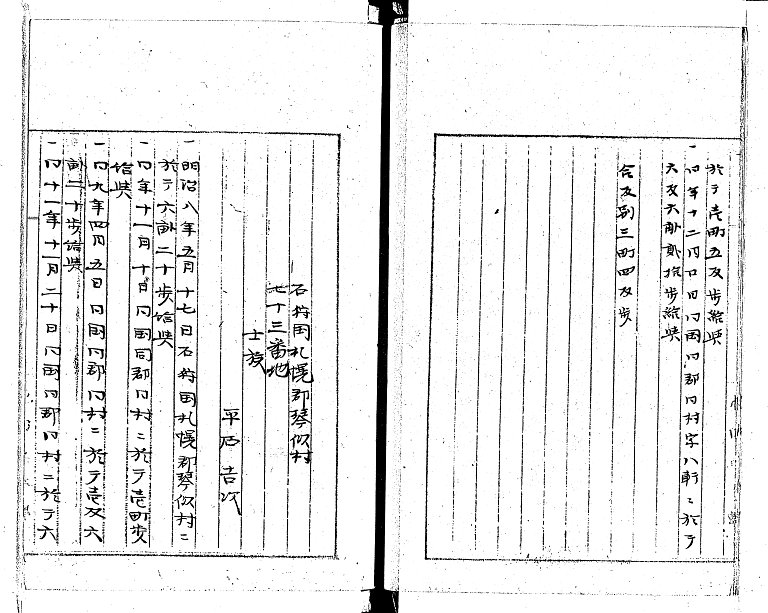 於テ壱町五反歩給与
一同年十二月 日同国同郡同村字八軒ニ於テ
六反六畝弐拾歩給与
合反別三町四反歩
石狩国札幌郡琴似村
七十三番地
士族
平石吉次
一明治八年五月十七日石狩国札幌郡琴似村ニ
於テ六畝二十歩給与
一同年十一月十日同国同郡同村ニ於テ壱町歩
給与
一同九年四月五日同国同郡同村ニ於テ壱反六
畝二十歩給与
一同十一年十一月二十日同国同郡同村ニ於テ六